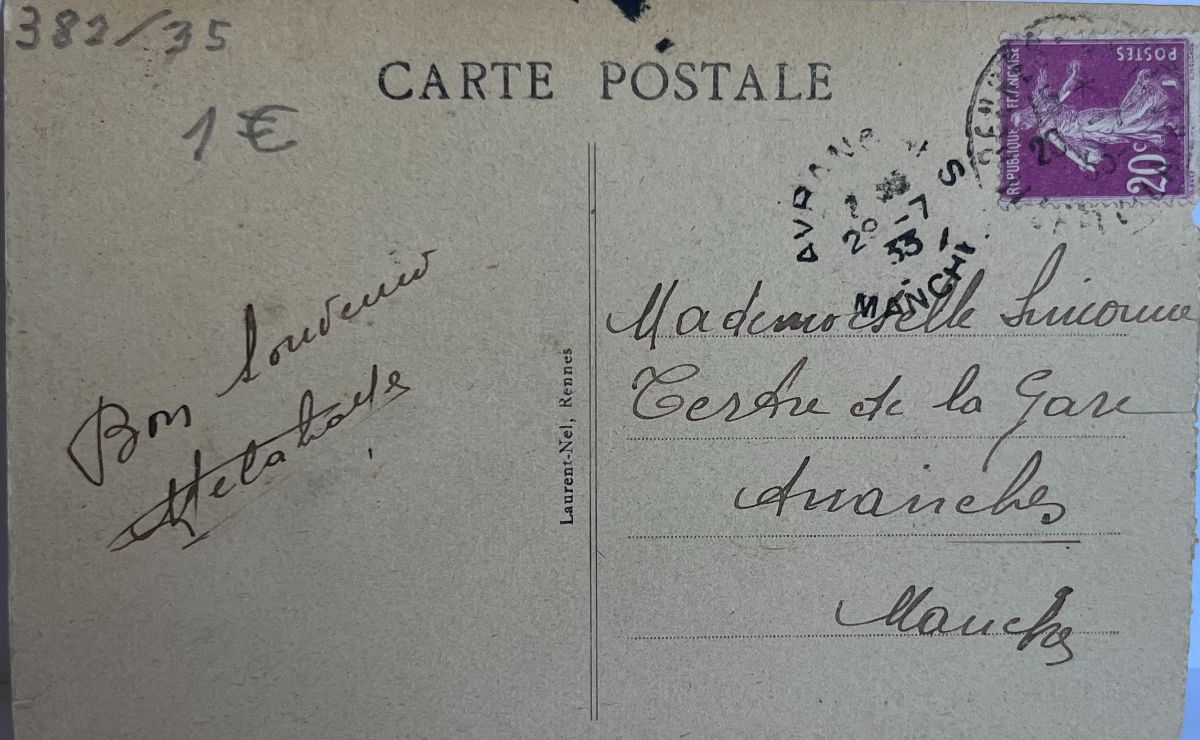 382/35
1 €
CARTE POSTALE
RÉPUBLIQUE FRANÇAISE
POSTES
20c
AVRANCH S
20 -7
33
MANCH
Bon Souvenir
Laurent-Nel, Rennes
Mademoiselle
Tertre de la Gare
Avranches
Manche